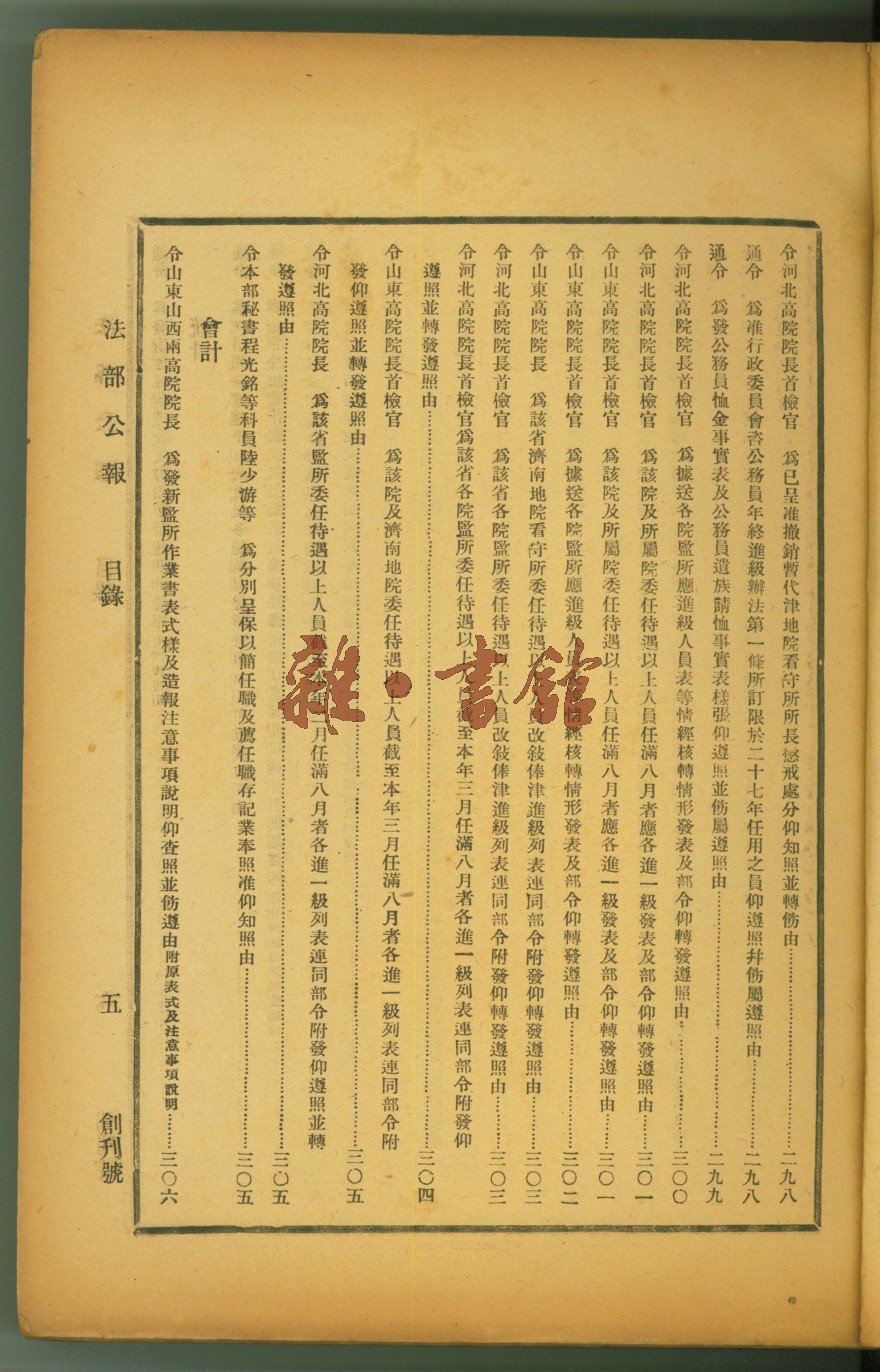 令河北高院院長首檢官　爲已呈准撤銷暫代津地院看守所所長懲戒處分仰知照並轉飭由……二九八
通令　爲准行政委員會咨公務員年終進級辦法第一條所訂限於二十七年任用之員仰遵照幷飭屬遵照由……二九八
通令　爲發公務員恤金事實表及公務員遺族請恤事實表樣張仰遵照並飭屬遵照由……二九九
令河北高院院長首檢官　爲據送各院監所應進級人員表等情經核轉情形發表及部令仰轉發遵照由……三〇〇
令河北高院院長首檢官　爲該院及所屬院委任待遇以上人員任滿八月者應各進一級發表及部令仰轉發遵照由……三〇一
令山東高院院長首檢官　爲該院及所屬院委任待遇以上人員任滿八月者應各進一級發表及部令仰轉發遵照由……三〇一
令山東高院院長首檢官　爲據送各院監所應進級人員表等情經核轉情形發表及部令仰轉發遵照由……三〇二
令山東高院院長　爲該省濟南地院看守所委任待遇以上人員改敍俸津進級列表連同部令附發仰轉發遵照由……三〇三
令河北高院院長首檢官　爲該省各院監所委任待遇以上人員改敍俸津進級列表連同部令附發仰轉發遵照由……三〇三
令河北高院院長首檢官爲該省各院監所委任待遇以上人員截至本年三月任滿八月者各進一級列表連同部令附發仰
遵照並轉發遵照由……三〇四
令山東高院院長首檢官　爲該院及濟南地院委任待遇以上人員截至本年三月任滿八月者各進一級列表連同部令附
發仰遵照並轉發遵照由……三〇五
令河北高院院長　爲該省監所委任待遇以上人員截至本年二月任滿八月者各進一級列表連同部令附發仰遵照並轉
發遵照由……三〇五
令本部秘書程光銘等科員陸少游等　爲分別呈保以簡任職及薦任職存記業奉照准仰知照由……三〇五
會計
令山東山西兩高院院長　爲發新監所作業書表式樣及造報注意事項說明仰查照並飭遵由附原表式及注意事項說明……三〇六
法部公報　目錄　五　創刊號
雜·書館